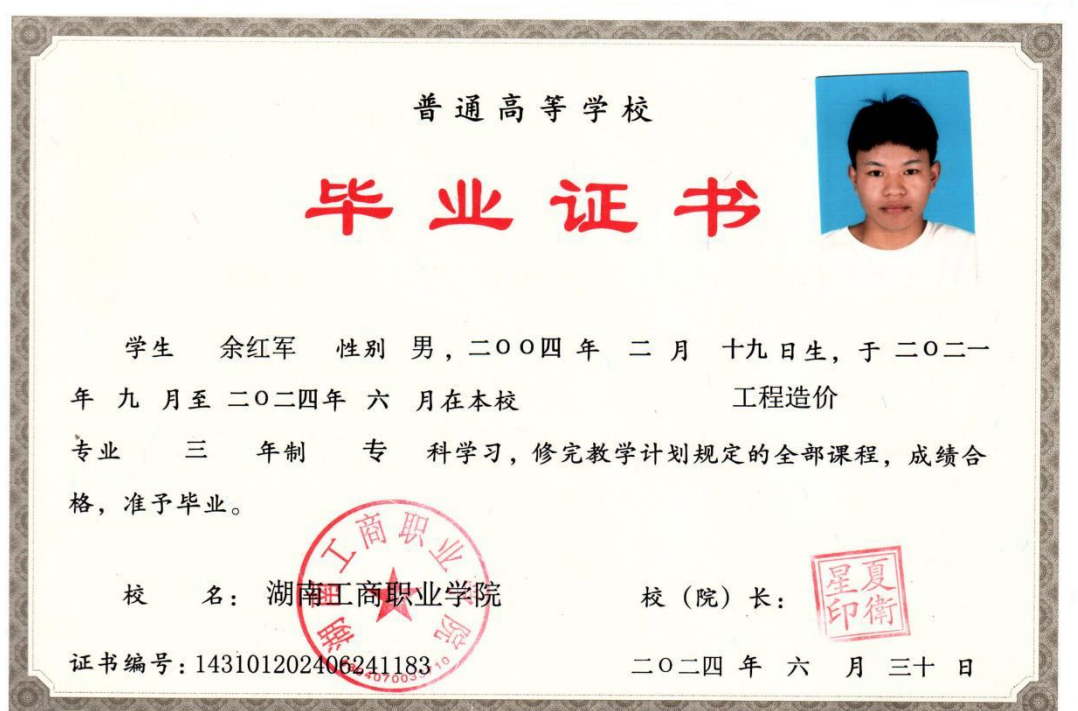 普通高等学校
毕业证书
学生 余红军 性别 男，二〇〇四 年 二 月 十九 日生，于 二〇二一
年 九 月至 二〇二四年 六 月在本校 工程造价
专业 三 年制 专 科学习，修完教学计划规定的全部课程，成绩合
格，准予毕业。
湖南工商职业学院
校 名：湖南工商职业学院
校（院）长：
夏衛
星印
证书编号：143101202406241183
二〇二四 年 六 月 三十 日